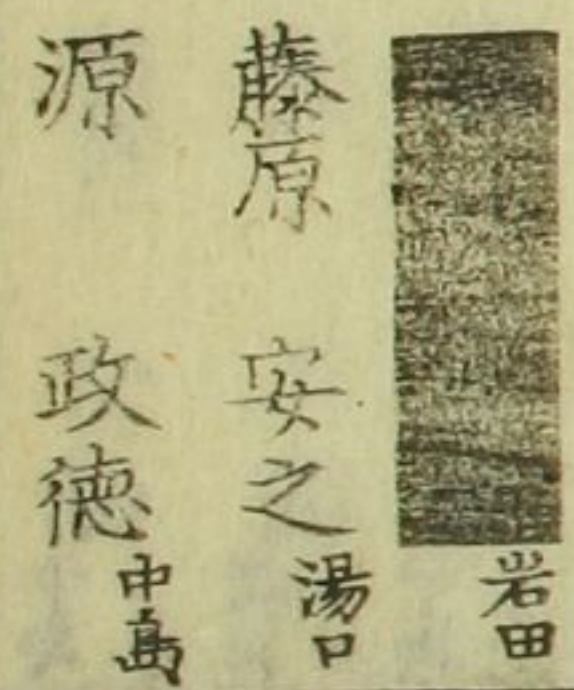 岩田
藤原 安之 湯口
源 政徳 中島